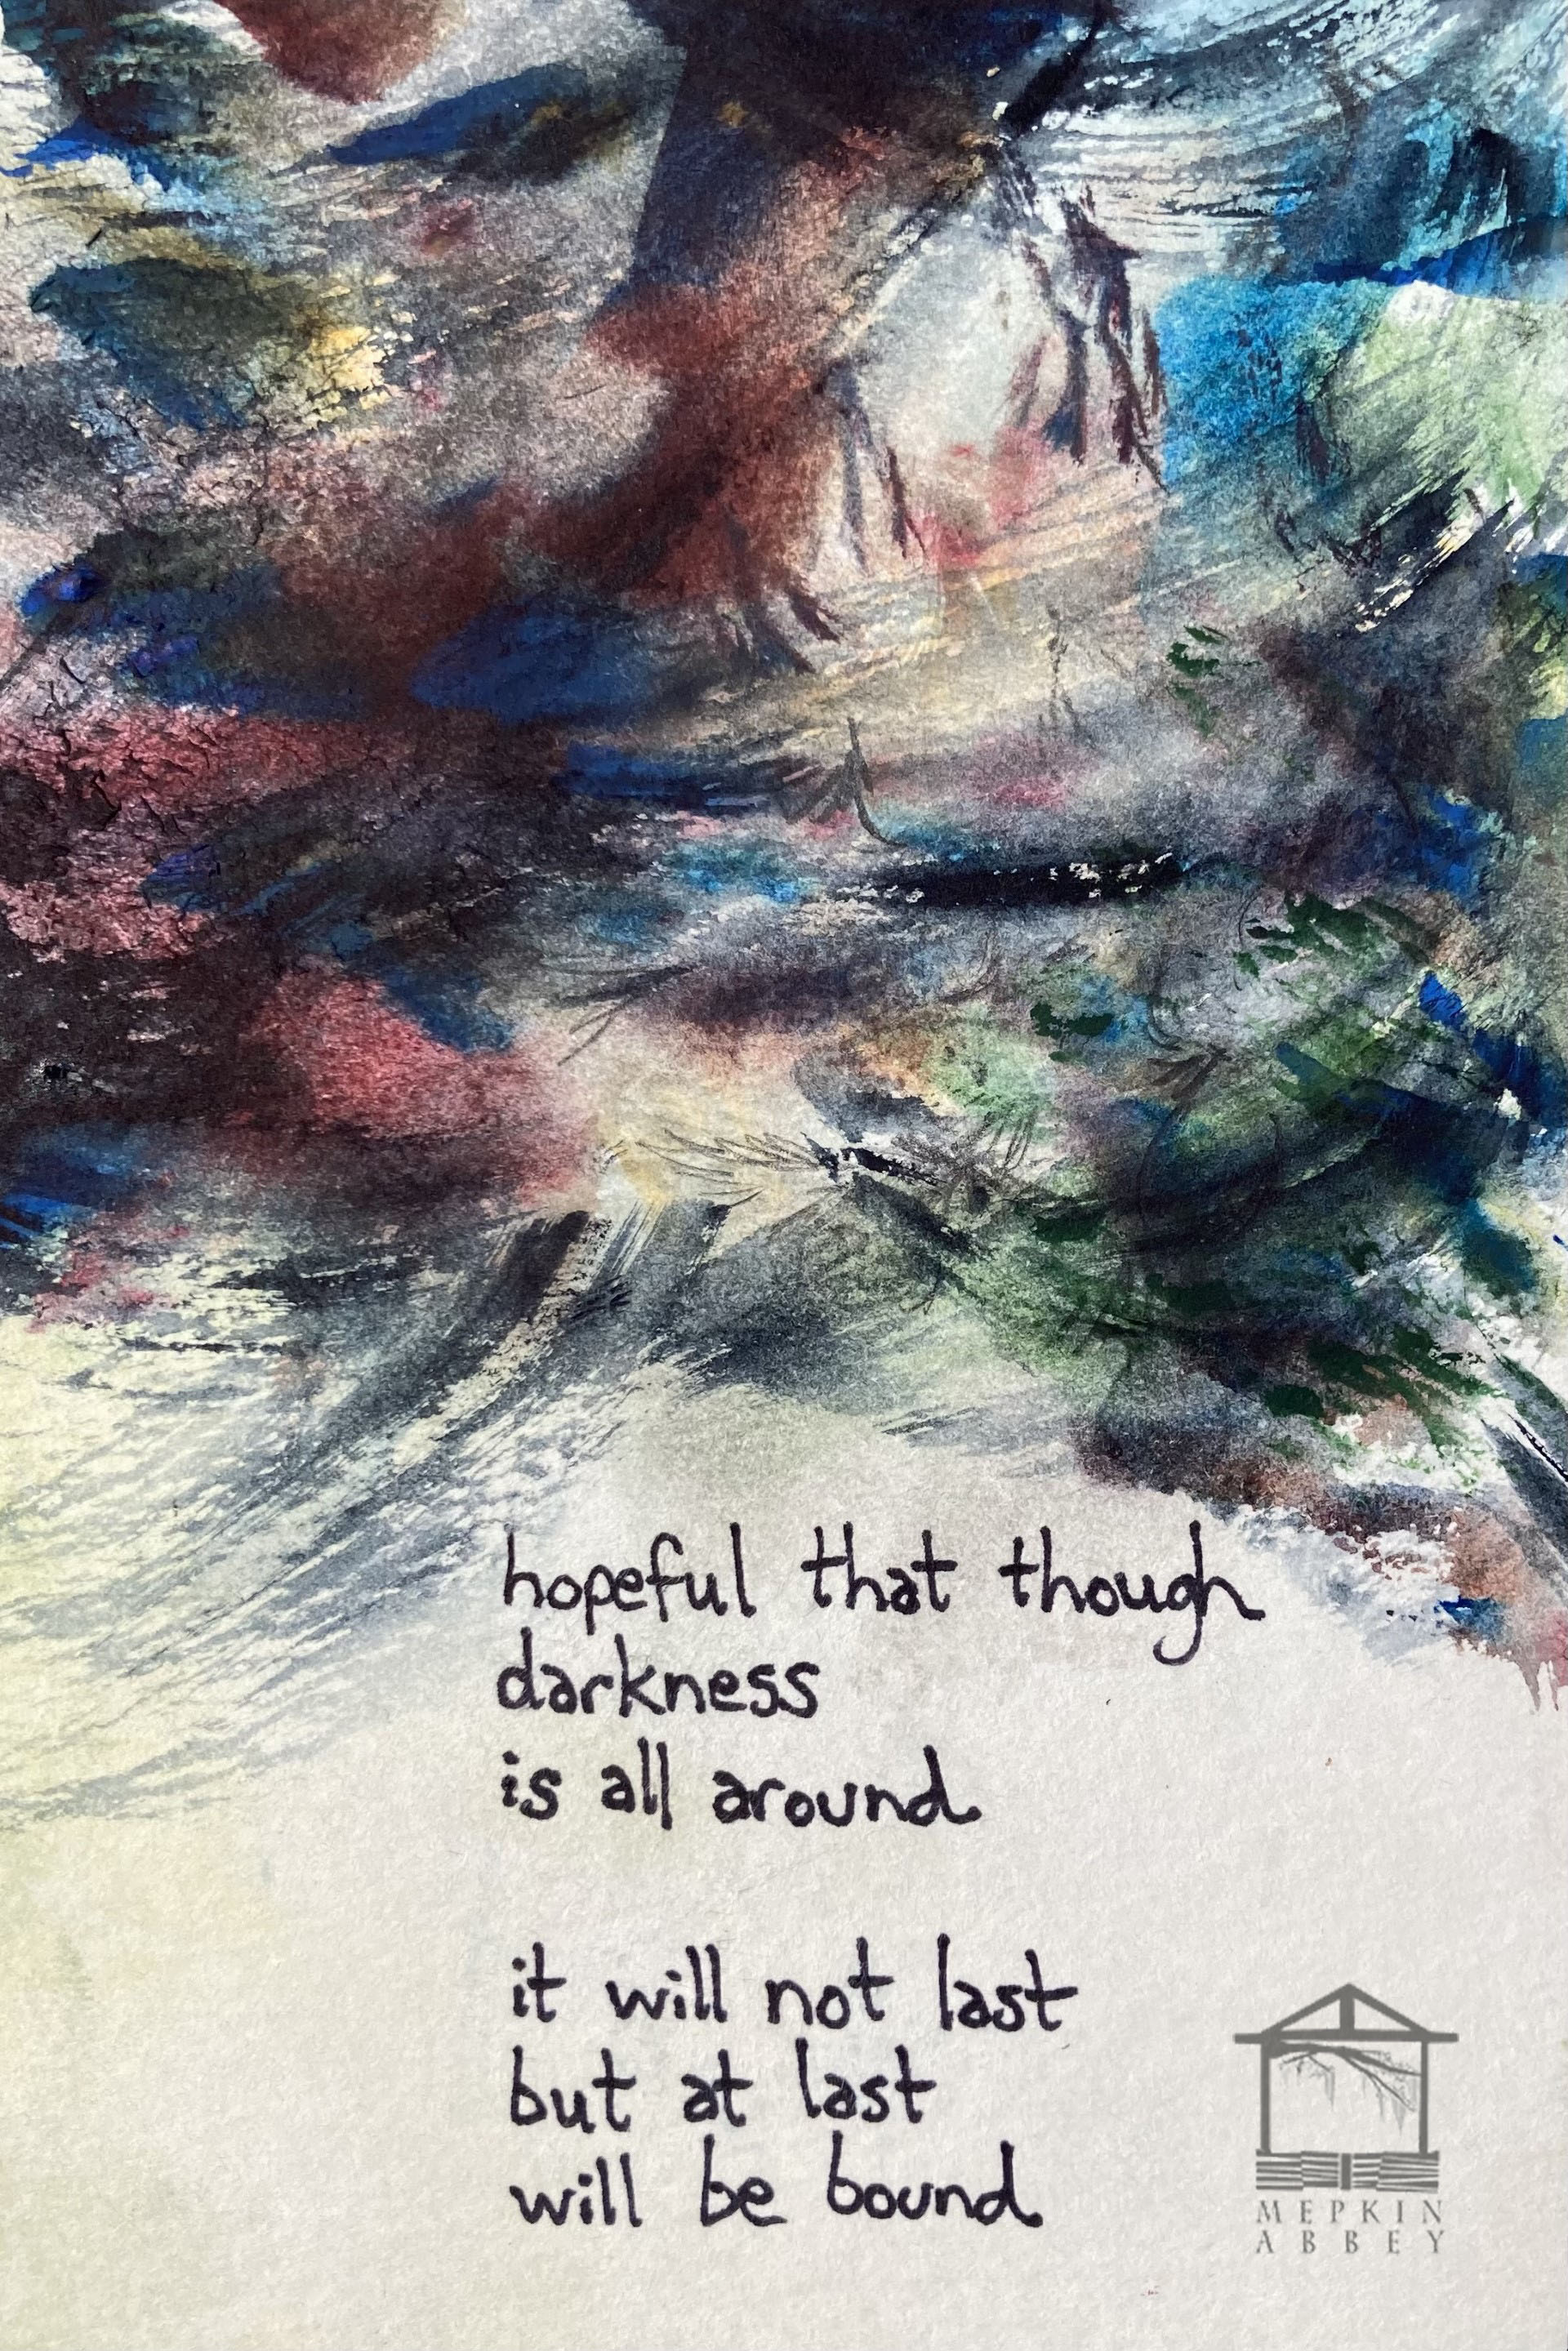 hopeful that though
darkness
is all around
it will not last
but at last
will be bound
MEPKIN
ABBEY